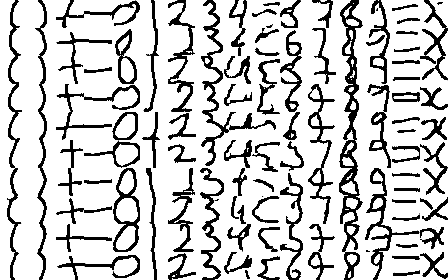 ( ) + - 0 1 2 3 4 5 6 7 8 9 = X
( ) + - 0 1 2 3 4 5 6 7 8 9 = X
( ) + - 0 1 2 3 4 5 6 7 8 9 = X
( ) + - 0 1 2 3 4 5 6 7 8 9 = X
( ) + - 0 1 2 3 4 5 6 7 8 9 = X
( ) + - 0 1 2 3 4 5 6 7 8 9 = X
( ) + - 0 1 2 3 4 5 6 7 8 9 = X
( ) + - 0 1 2 3 4 5 6 7 8 9 = X
( ) + - 0 1 2 3 4 5 6 7 8 9 = X
( ) + - 0 1 2 3 4 5 6 7 8 9 = X